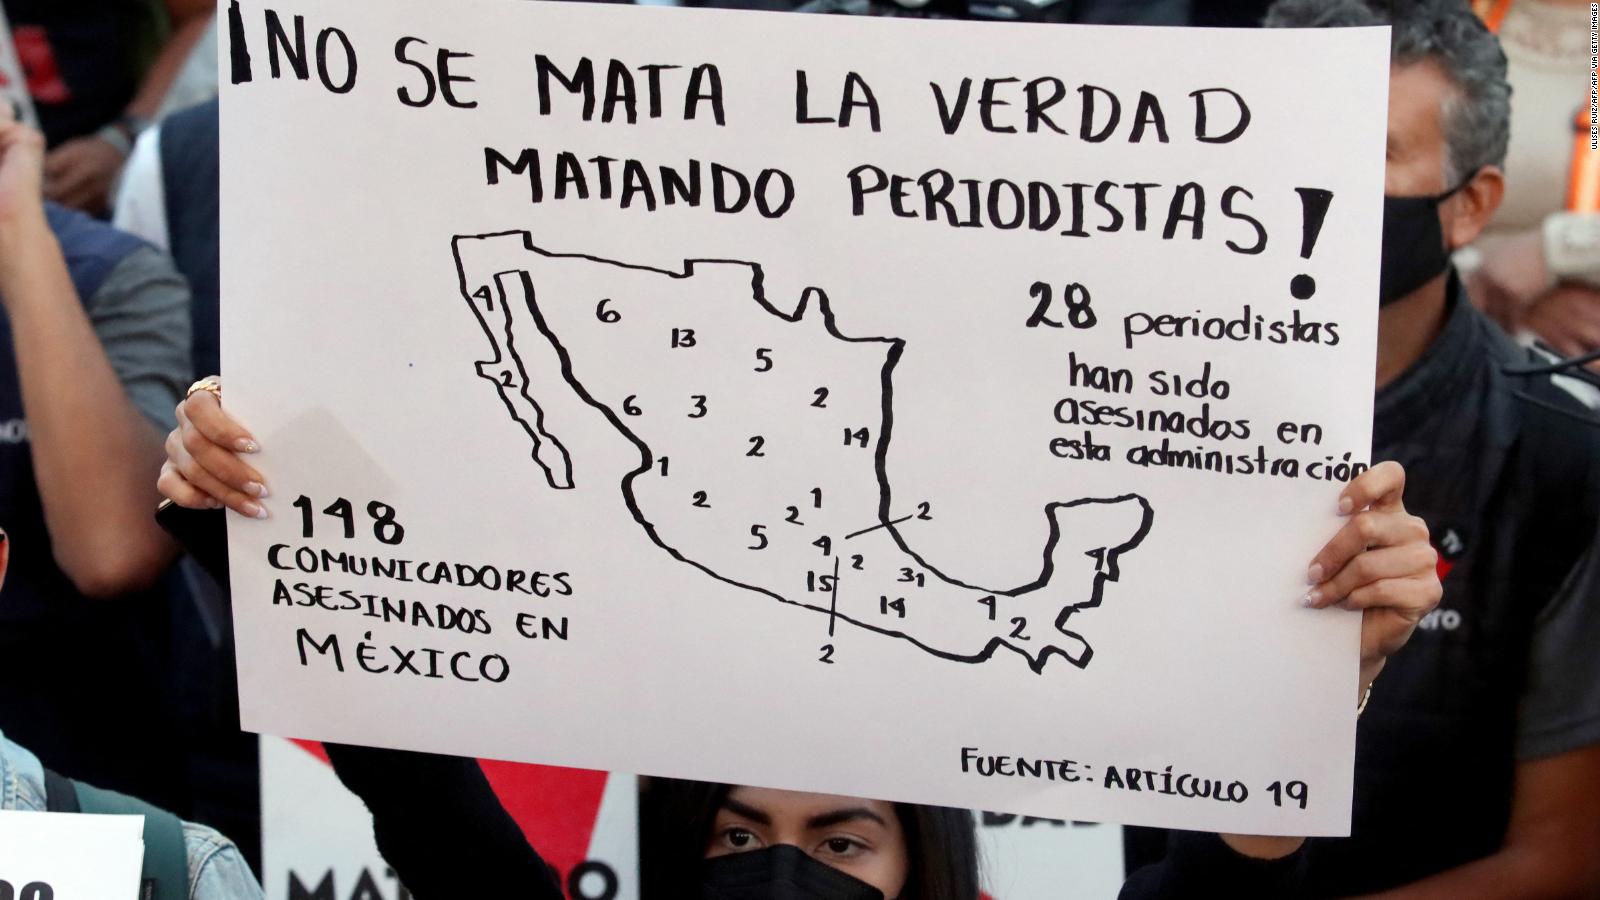 ¡NO SE MATA LA VERDAD
MATANDO PERIODISTAS!
28 periodistas
han sido
asesinados en
esta administración
4
6
13
5
2
6
3
2
14
2
1
2
2
1
5
4
2
2
15
31
14
2
4
2
4
148
COMUNICADORES
ASESINADOS EN
MÉXICO
FUENTE: ARTÍCULO 19
MAT
DAD
ero
ULISES RUIZ/AFP/AFP VIA GETTY IMAGES